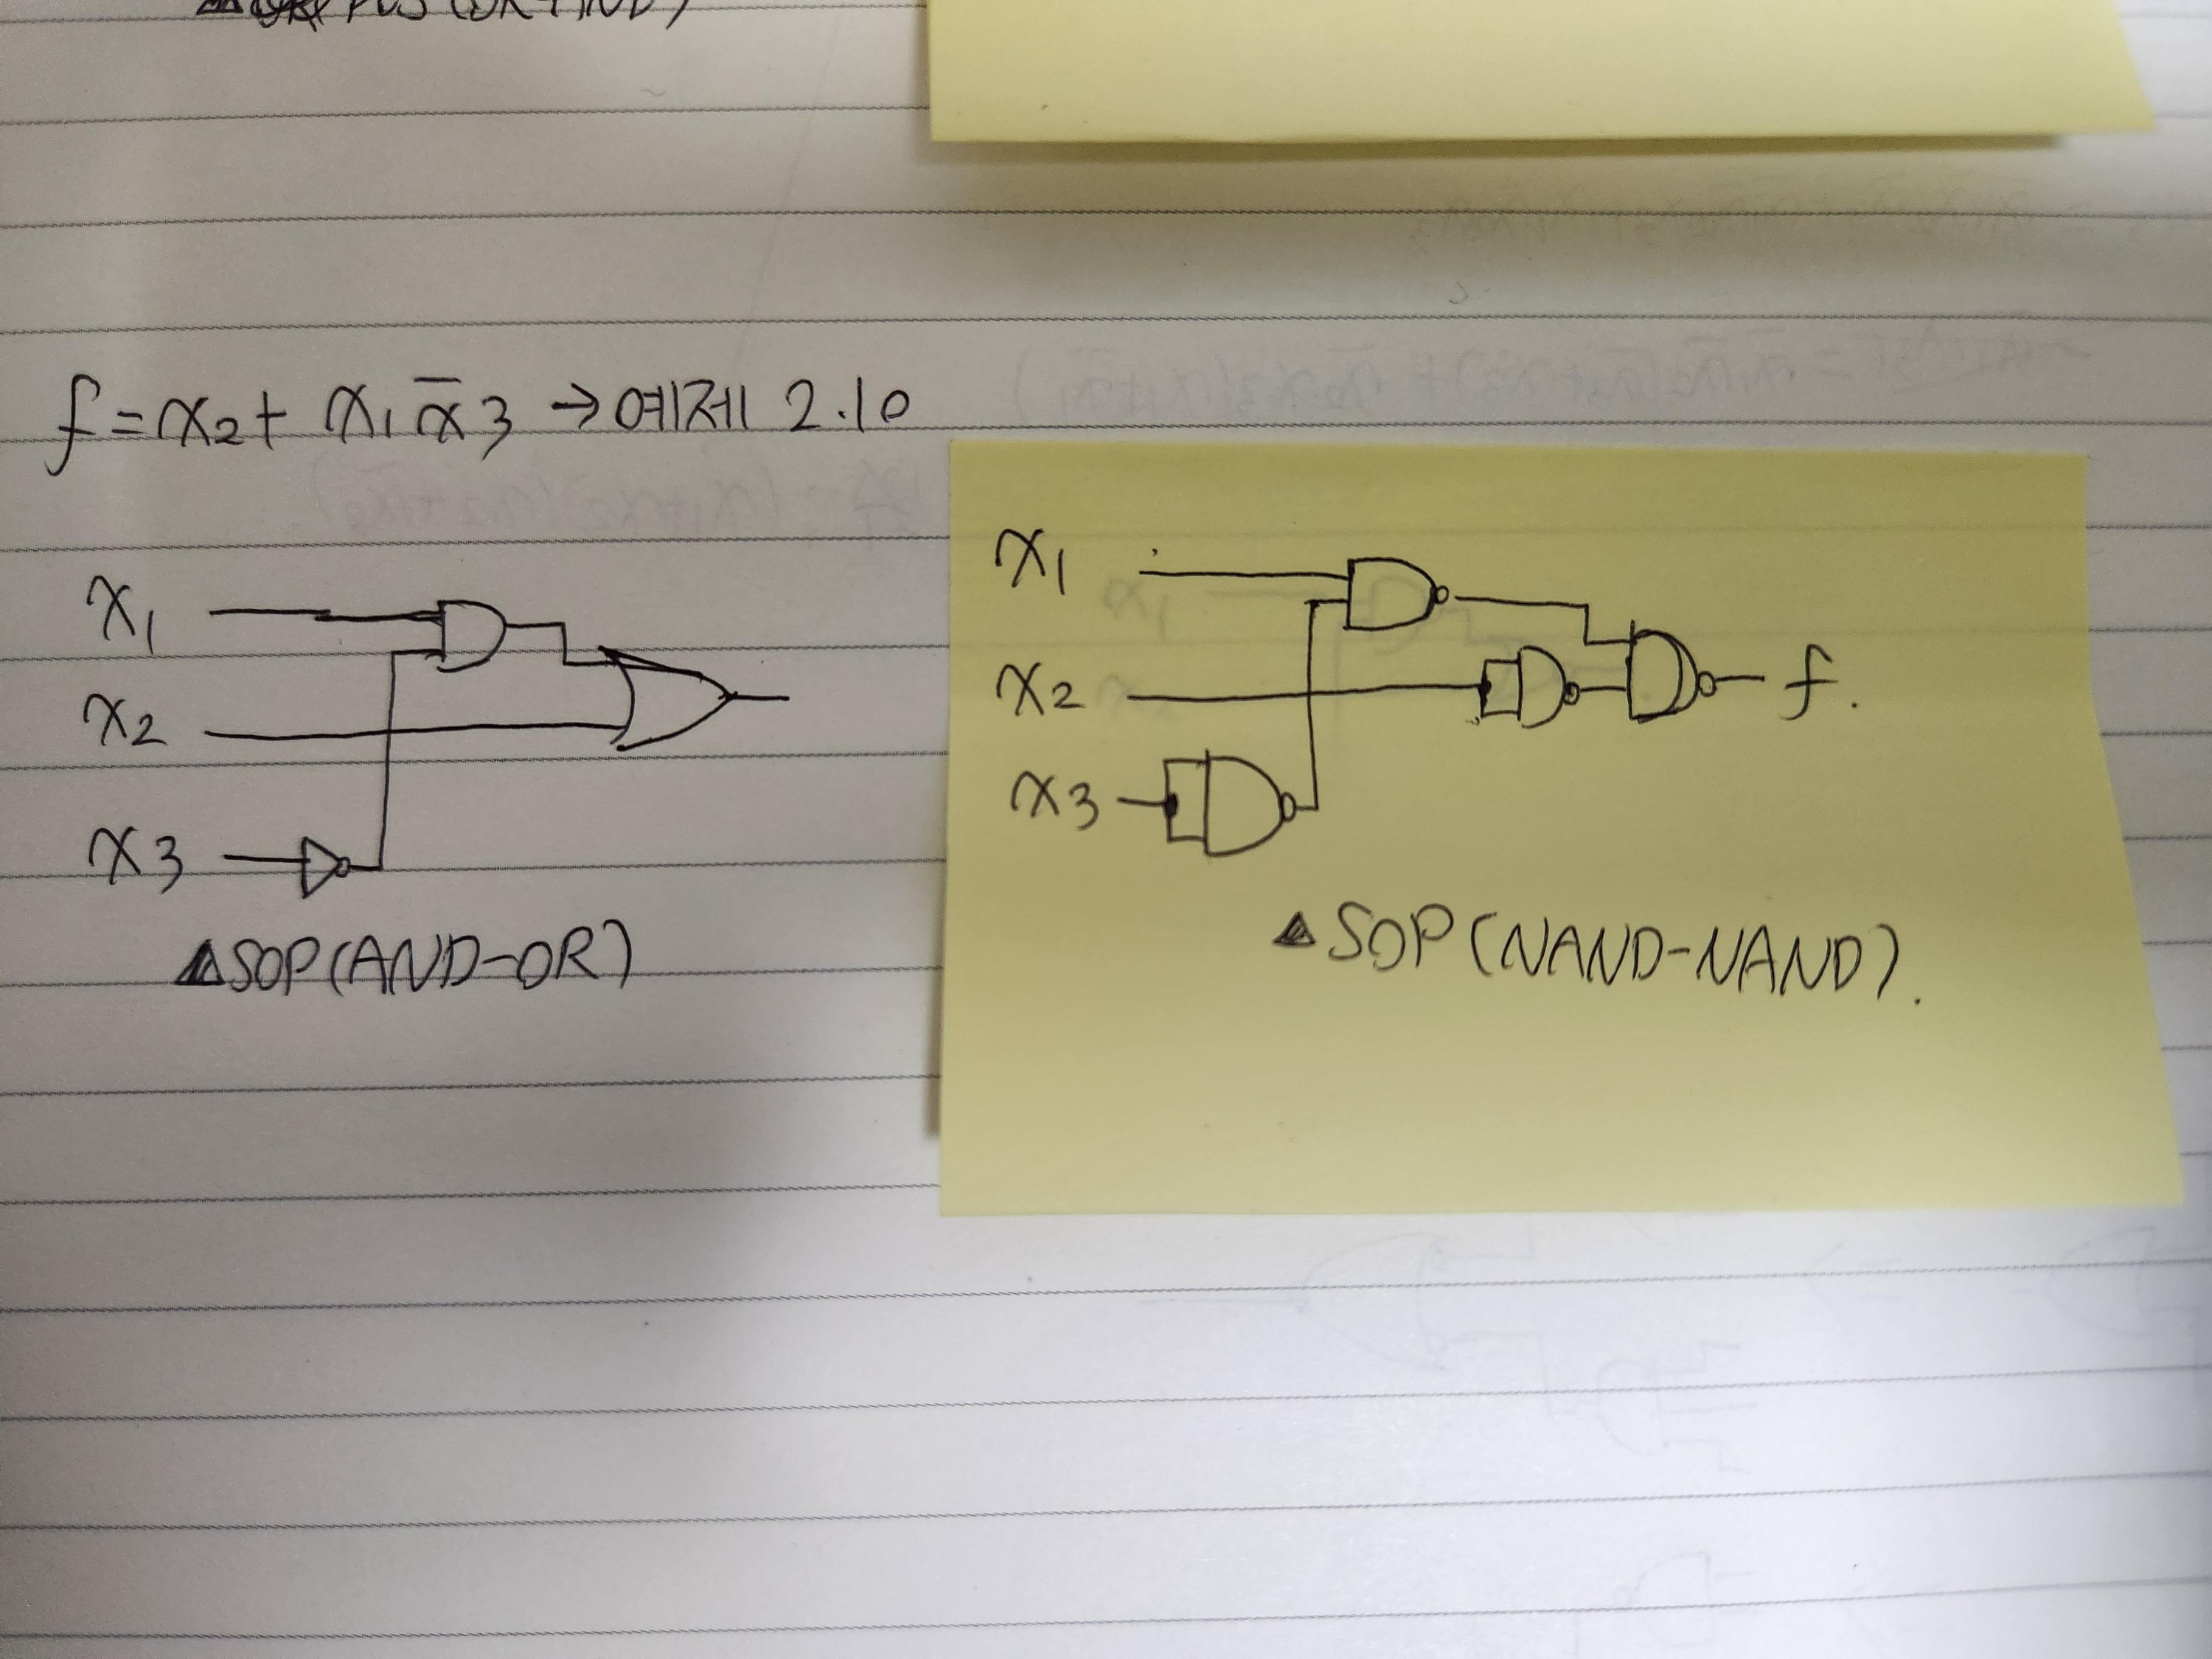 POS (OR-AND)
f = x₂ + x₁x̄₃ → 예제 2.10
x₁
x₂
x₃
▲SOP(AND-OR)
x₁
x₂
f.
x₃
▲SOP(NAND-NAND).